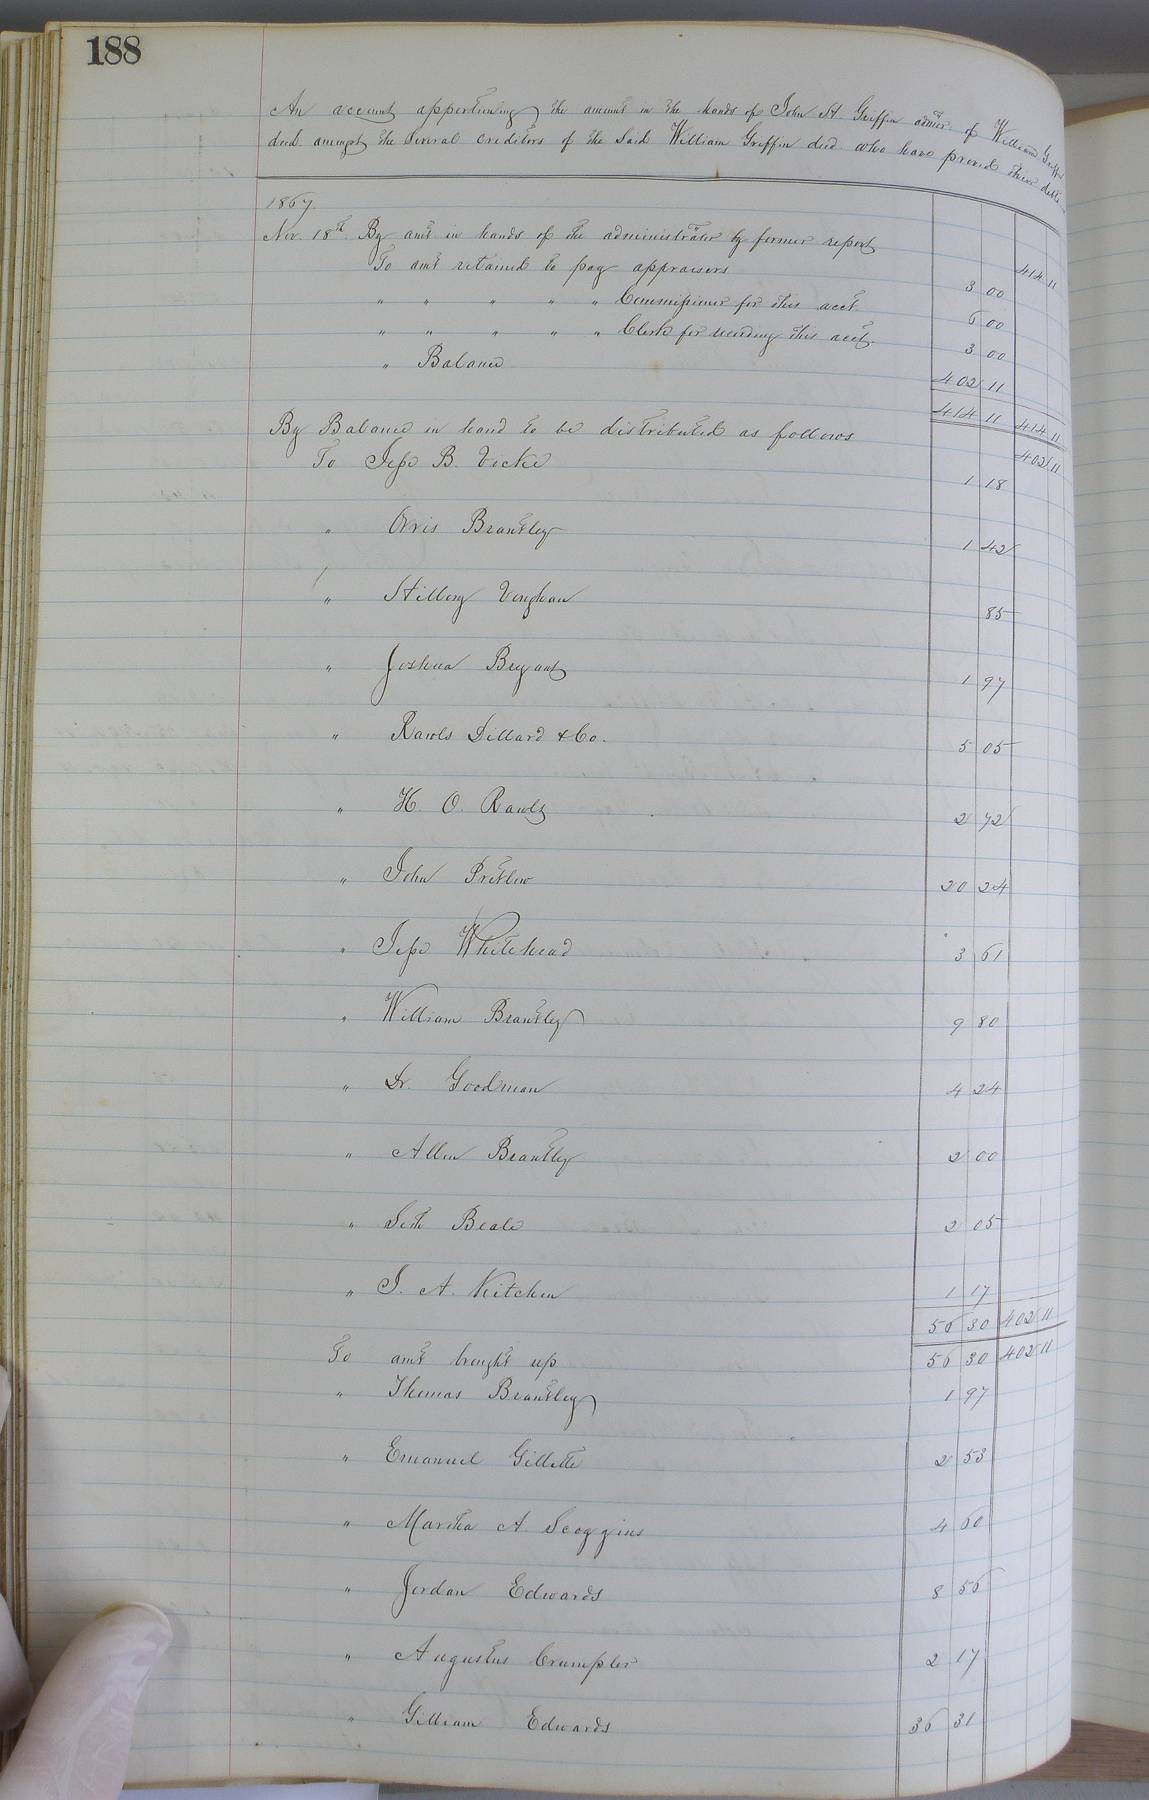 188
An account apportioning the amount in the hands of John H. Griffin admr. of William Griffin
decd. amongst the Several Creditors of the Said William Griffin decd. who have proved their debts
1867.
Nov. 18th. By amt in hands of the administrator by former report 414 11
To amt retained to pay appraisers 3 00
" " " " " Commissioner for this acct. 6 00
" " " " " Clerk for recording this acct. 3 00
" Balance 402 11
414 11 414 11
By Balance in hand to be distributed as follows 402 11
To Jesse B. Vicke 1 18
" Orris Brantley 1 42
" Hillory Vaughan 85
" Joshua Bryant 1 97
" Rawls Dillard & Co. 5 05
" H. O. Rawls 2 72
" John Pretlow 20 24
" Jesse Whitehead 3 61
" William Brantley 9 80
" Dr. Goodman 4 24
" Allen Brantley 2 00
" Seth Beale 2 05
" J. A. Kitchen 1 17
56 30 402 11
To amt brought up 56 30 402 11
" Thomas Brantley 1 97
" Emanuel Gillette 2 53
" Martha A. Scoggins 4 60
" Jordan Edwards 8 56
" Augustus Crumpler 2 17
" Gilliam Edwards 36 31